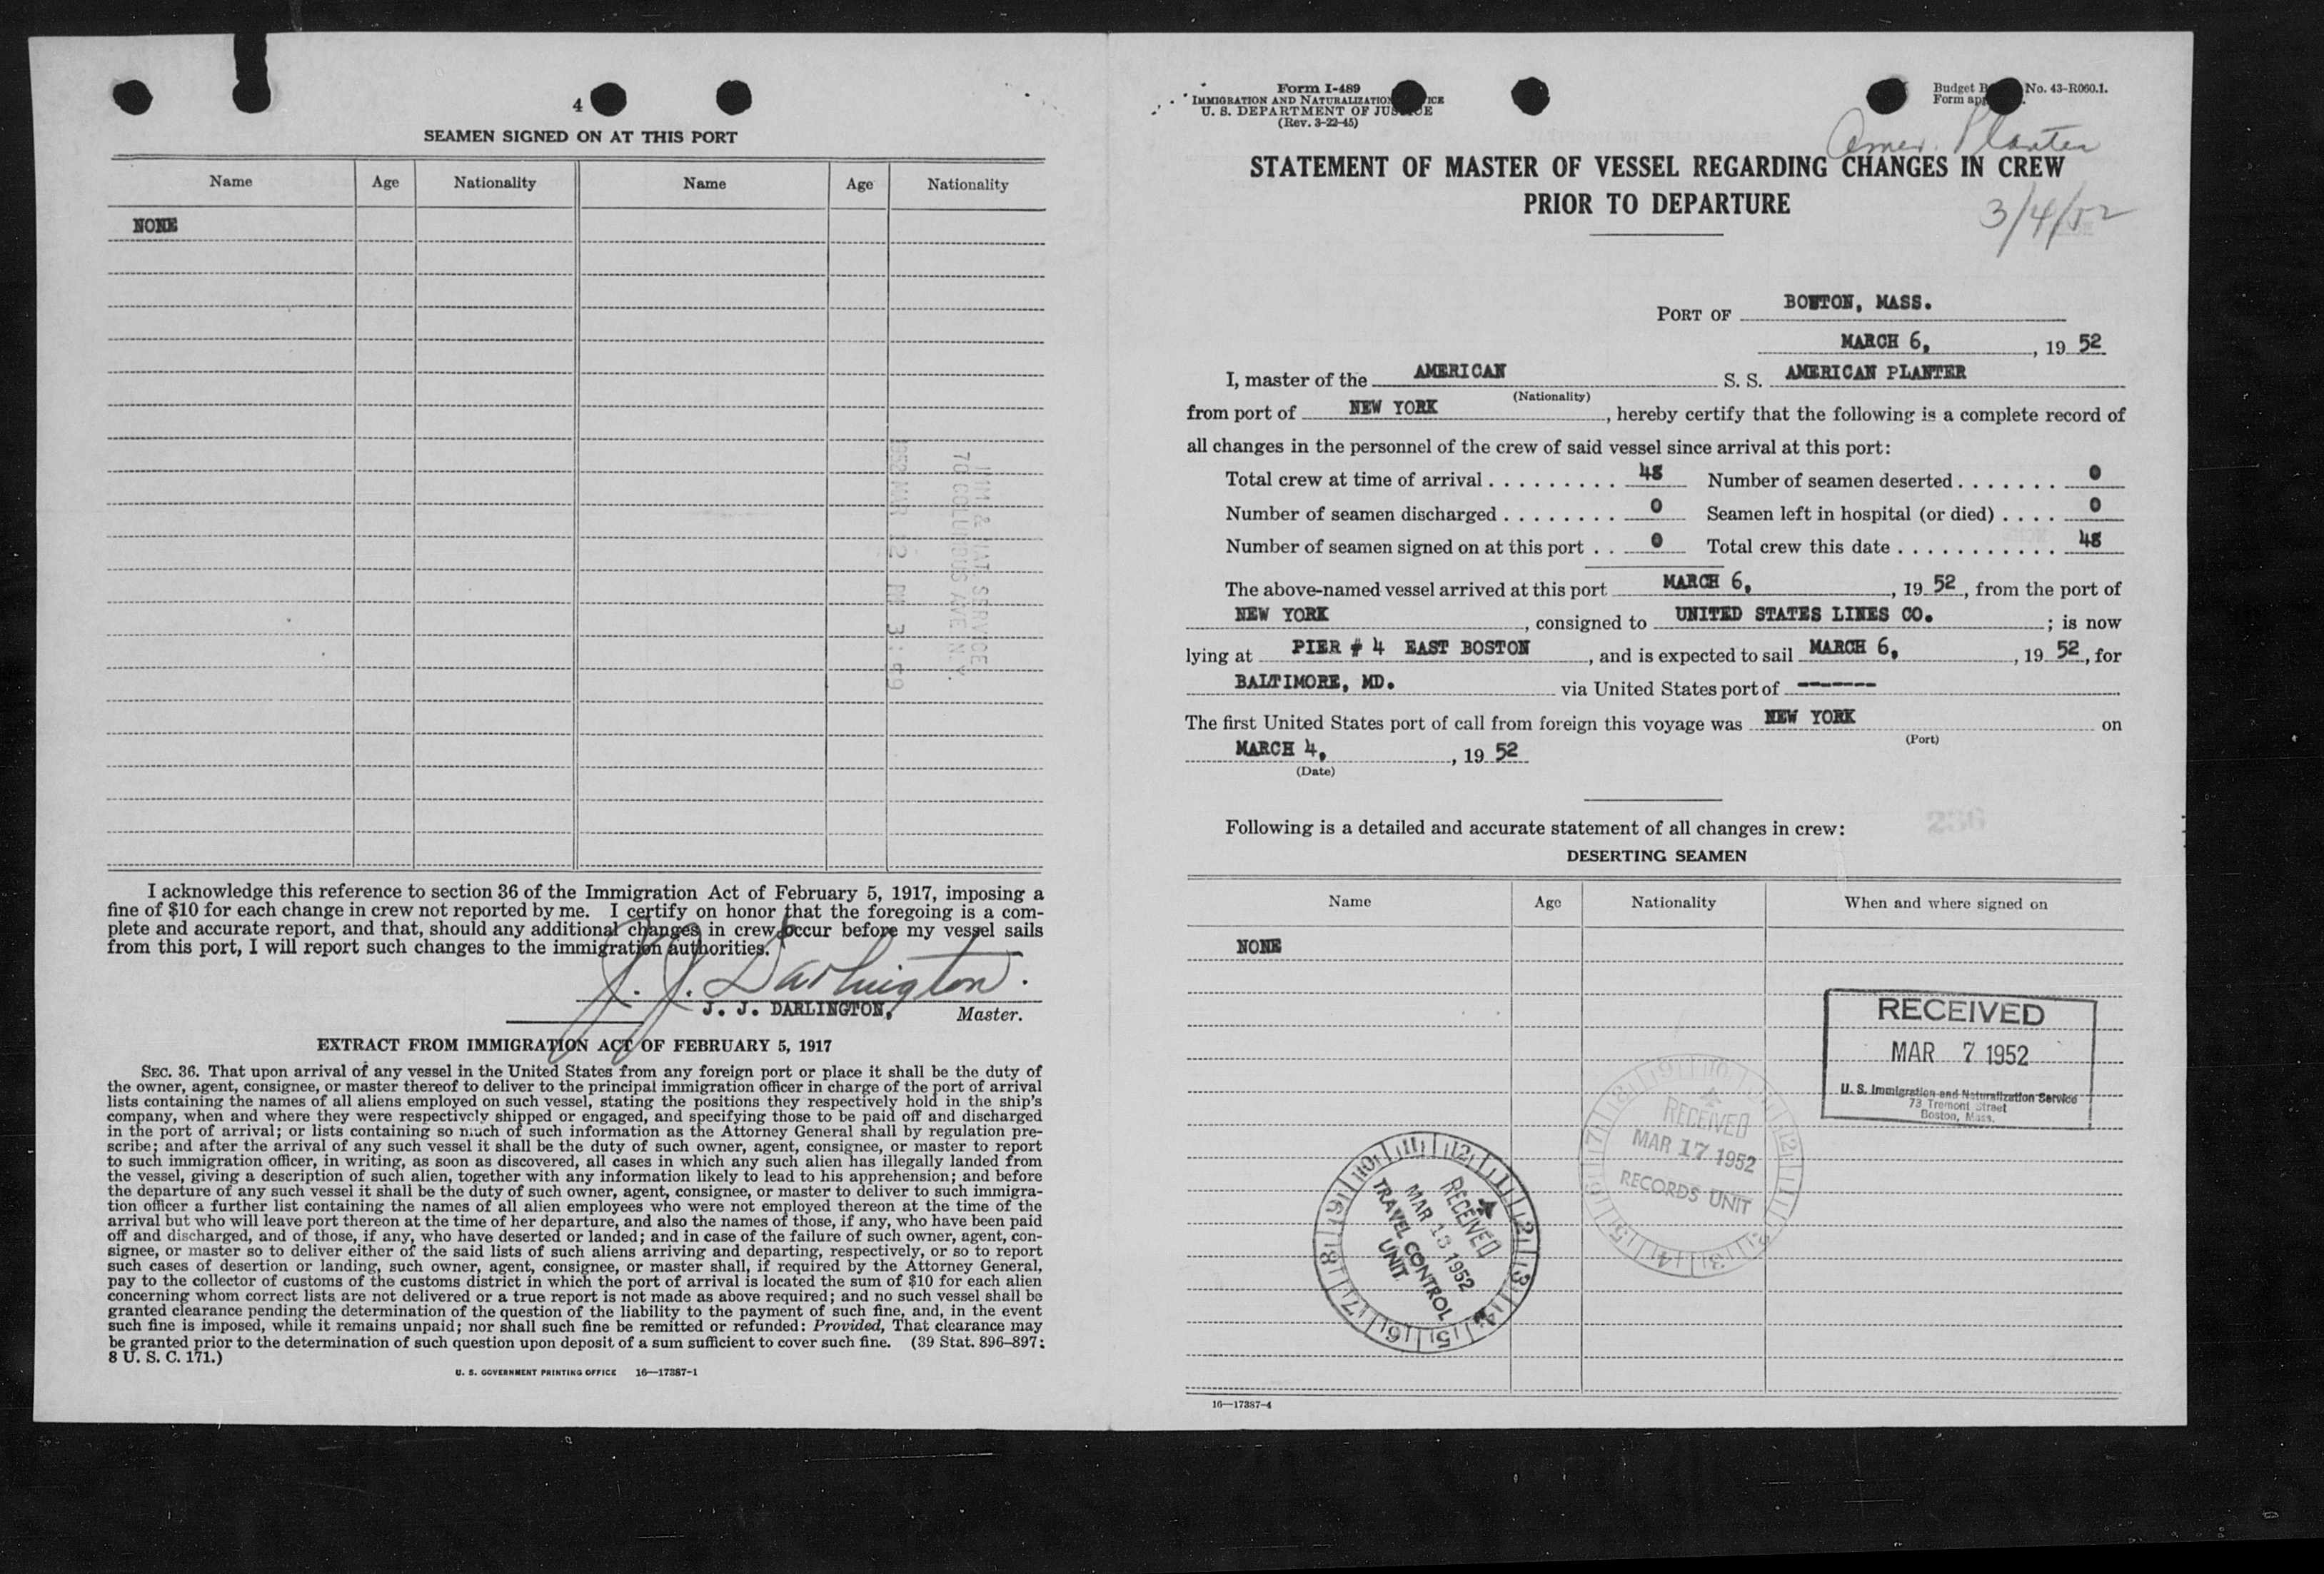 4
SEAMEN SIGNED ON AT THIS PORT
Name Age Nationality Name Age Nationality
NONE
IMM & NAT. SERVICE
70 COLUMBUS AVE N.Y.
1952 MAR 12 PM 3:59
I acknowledge this reference to section 36 of the Immigration Act of February 5, 1917, imposing a
fine of $10 for each change in crew not reported by me. I certify on honor that the foregoing is a com-
plete and accurate report, and that, should any additional changes in crew occur before my vessel sails
from this port, I will report such changes to the immigration authorities.
J. J. Darlington.
J. J. DARLINGTON, Master.
EXTRACT FROM IMMIGRATION ACT OF FEBRUARY 5, 1917
SEC. 36. That upon arrival of any vessel in the United States from any foreign port or place it shall be the duty of
the owner, agent, consignee, or master thereof to deliver to the principal immigration officer in charge of the port of arrival
lists containing the names of all aliens employed on such vessel, stating the positions they respectively hold in the ship's
company, when and where they were respectively shipped or engaged, and specifying those to be paid off and discharged
in the port of arrival; or lists containing so much of such information as the Attorney General shall by regulation pre-
scribe; and after the arrival of any such vessel it shall be the duty of such owner, agent, consignee, or master to report
to such immigration officer, in writing, as soon as discovered, all cases in which any such alien has illegally landed from
the vessel, giving a description of such alien, together with any information likely to lead to his apprehension; and before
the departure of any such vessel it shall be the duty of such owner, agent, consignee, or master to deliver to such immigra-
tion officer a further list containing the names of all alien employees who were not employed thereon at the time of the
arrival but who will leave port thereon at the time of her departure, and also the names of those, if any, who have been paid
off and discharged, and of those, if any, who have deserted or landed; and in case of the failure of such owner, agent, con-
signee, or master so to deliver either of the said lists of such aliens arriving and departing, respectively, or so to report
such cases of desertion or landing, such owner, agent, consignee, or master shall, if required by the Attorney General,
pay to the collector of customs of the customs district in which the port of arrival is located the sum of $10 for each alien
concerning whom correct lists are not delivered or a true report is not made as above required; and no such vessel shall be
granted clearance pending the determination of the question of the liability to the payment of such fine, and, in the event
such fine is imposed, while it remains unpaid; nor shall such fine be remitted or refunded: Provided, That clearance may
be granted prior to the determination of such question upon deposit of a sum sufficient to cover such fine. (39 Stat. 896–897;
8 U. S. C. 171.)
U. S. GOVERNMENT PRINTING OFFICE 16—17387-1
Form I-489
IMMIGRATION AND NATURALIZATION ICE
U. S. DEPARTMENT OF JUSTICE
(Rev. 3-22-45)
Budget B No. 43-R060.1.
Form ap
Amer. Planter
STATEMENT OF MASTER OF VESSEL REGARDING CHANGES IN CREW
PRIOR TO DEPARTURE
3/4/52
PORT OF BOSTON, MASS.
MARCH 6, , 19 52
I, master of the AMERICAN S. S. AMERICAN PLANTER
(Nationality)
from port of NEW YORK , hereby certify that the following is a complete record of
all changes in the personnel of the crew of said vessel since arrival at this port:
Total crew at time of arrival . . . . . . . . . 48 Number of seamen deserted . . . . . . . 0
Number of seamen discharged . . . . . . . . 0 Seamen left in hospital (or died) . . . . 0
Number of seamen signed on at this port . . 0 Total crew this date . . . . . . . . . . . . 48
The above-named vessel arrived at this port MARCH 6, , 19 52, from the port of
NEW YORK , consigned to UNITED STATES LINES CO. ; is now
lying at PIER # 4 EAST BOSTON , and is expected to sail MARCH 6, , 19 52, for
BALTIMORE, MD. via United States port of -------
The first United States port of call from foreign this voyage was NEW YORK on
(Port)
MARCH 4, , 19 52
(Date)
236
Following is a detailed and accurate statement of all changes in crew:
DESERTING SEAMEN
Name Age Nationality When and where signed on
NONE
RECEIVED
MAR 7 1952
U. S. Immigration and Naturalization Service
73 Tremont Street
Boston, Mass.
9 10 11 12 1 2 3 4 5 6 7 8
RECEIVED
MAR 17 1952
RECORDS UNIT
10 11 12 1 2 3 4 5 6 7 8 9
RECEIVED
MAR 13 1952
TRAVEL CONTROL
UNIT
16—17387-4